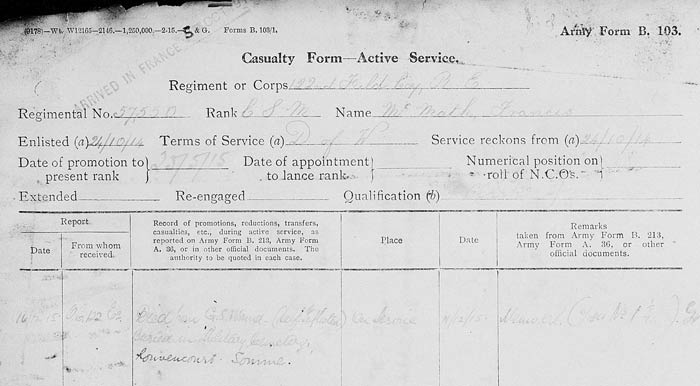 (9178)—Wt. W12165—2146.—1,250,000.—2-15.—S & G. Forms B. 103/1.
Army Form B. 103.
ARRIVED IN FRANCE
Casualty Form—Active Service.
Regiment or Corps 122nd Field Coy, R E
Regimental No. 57550 Rank C S M Name Mc Math, Francis
Enlisted (a) 24/10/14 Terms of Service (a) D of W Service reckons from (a) 24/10/14
Date of promotion to present rank } Date of appointment to lance rank } Numerical position on roll of N.C.Os. }
Extended Re-engaged Qualification (b)
Report
Date
From whom received.
Record of promotions, reductions, transfers, casualties, etc., during active service, as reported on Army Form B. 213, Army Form A. 36, or in other official documents. The authority to be quoted in each case.
Place
Date
Remarks taken from Army Form B. 213, Army Form A. 36, or other official documents.
Died G.S. Wound (Self Inflicted)
11/12/15
buried in Military Cemetery,
Louvencourt. Somme.